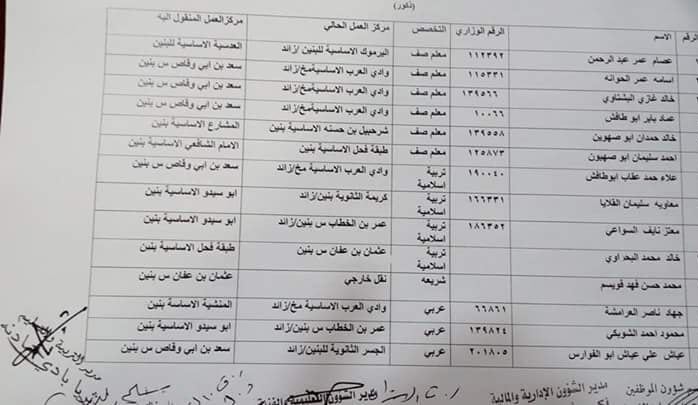 (ذكور)
الرقم الاسم الرقم الوزاري التخصص مركز العمل الحالي مركز العمل المنقول اليه
عصام عمر عبد الرحمن ١١٢٣٩٢ معلم صف اليرموك الاساسية للبنين/زائد العدسية الاساسية للبنين
اسامه عمر الحوانه ١١٥٣٣١ معلم صف وادي العرب الاساسية مخ/زائد سعد بن ابي وقاص س بنين
خالد غازي البشتاوي ١٣٩٥٦٦ معلم صف وادي العرب الاساسية مخ/زائد سعد بن ابي وقاص س بنين
عماد باير ابو طافش ١٠٠٦٦ معلم صف وادي العرب الاساسية مخ/زائد سعد بن ابي وقاص س بنين
خالد حمدان ابو صهوين ١٣٩٥٥٨ معلم صف شرحبيل بن حسنه الاساسية بنين المشارع الاساسية بنين
احمد سليمان ابو صهيون ١٢٥٨٧٣ معلم صف طبقة فحل الاساسية بنين الامام الشافعي الاساسية بنين
علاء حمد عقاب ابوطافش ١٩٠٠٤٠ تربية اسلامية وادي العرب الاساسية مخ/زائد سعد بن ابي وقاص س بنين
معاويه سليمان القلايا ١٦٦٣٣١ تربية اسلامية كريمة الثانوية بنين/زائد ابو سيدو الاساسية بنين
معتز نايف السواعي ١٨٦٣٥٢ تربية اسلامية عمر بن الخطاب س بنين/زائد ابو سيدو الاساسية بنين
خالد محمد البحداوي تربية اسلامية عثمان بن عفان س بنين طبقة فحل الاساسية بنين
محمد حسن فهد قويسم شريعه نقل خارجي عثمان بن عفان س بنين
جهاد ناصر العرامشة ٦٦٨٦١ عربي وادي العرب الاساسية مخ/زائد المنشية الاساسة بنين
محمود احمد الشويكي ١٣٩٨٢٤ عربي عمر بن الخطاب س بنين/زائد ابو سيدو الاساسية بنين
عياش علي عياش ابو الفوارس ٢٠١٨٠٥ عربي الجسر الثانوية للبنين/زائد سعد بن ابي وقاص س بنين
شؤون الموظفين مدير الشؤون الإدارية والمالية مدير الشؤون التعليمية والفنية مدير التربية والتعليم